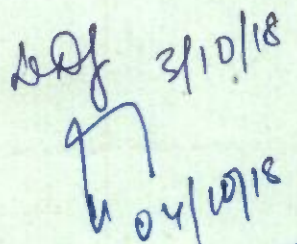 3/10/18
04/10/18